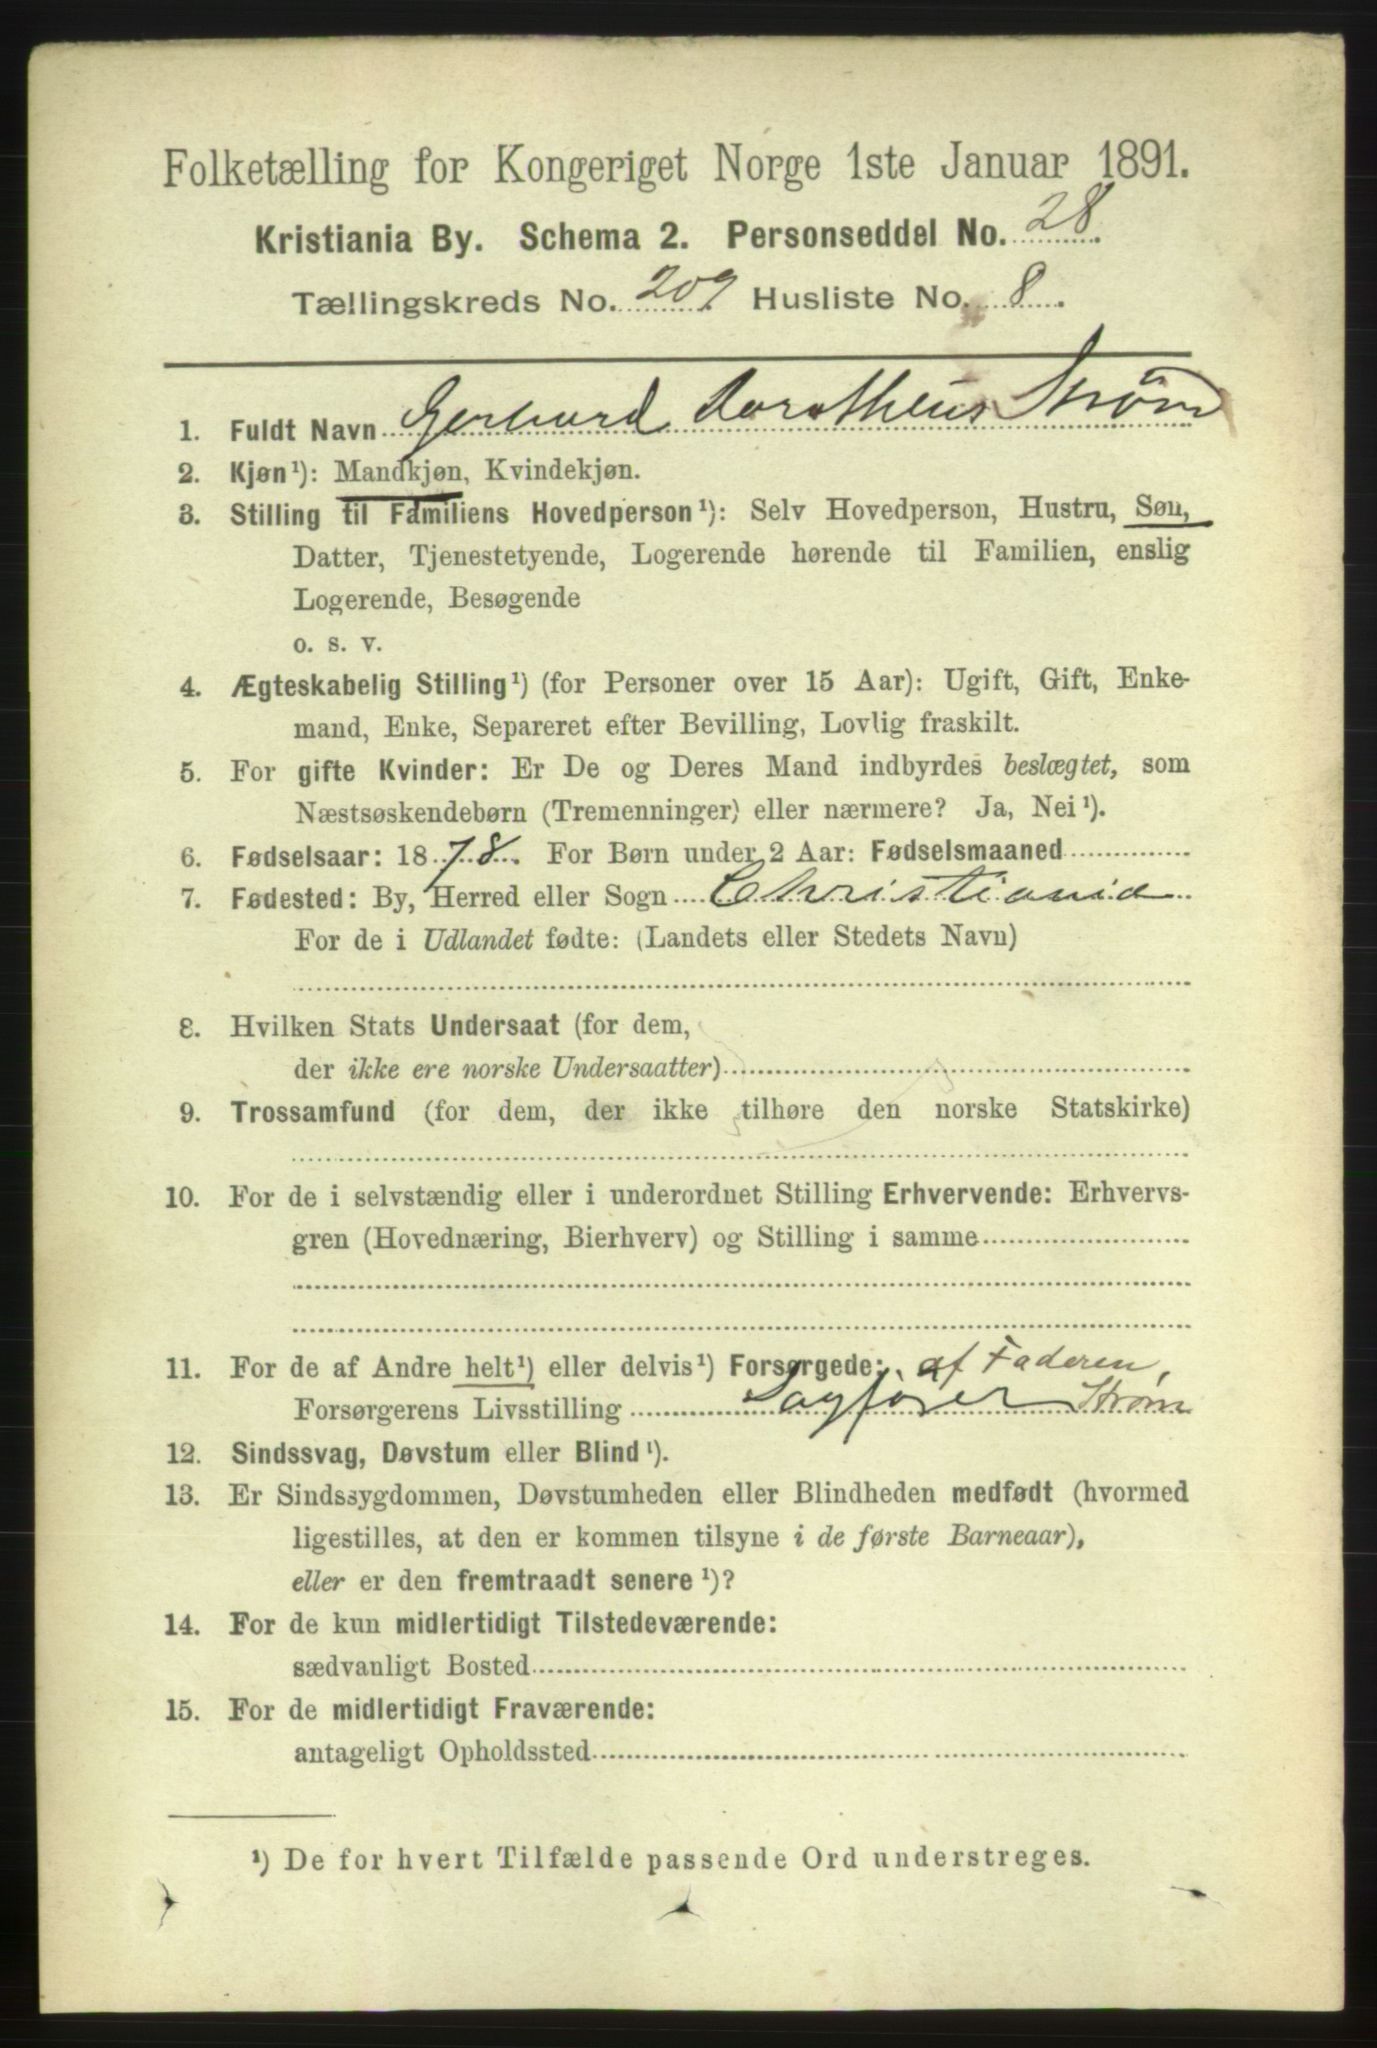 Folketælling for Kongeriget Norge 1ste Januar 1891.
Kristiania By. Schema 2. Personseddel No. 28
Tællingskreds No. 209 Husliste No. 8.
1. Fuldt Navn Gerhard Dorotheus Strøm
2. Kjøn¹): Mandkjøn, Kvindekjøn.
3. Stilling til Familiens Hovedperson¹): Selv Hovedperson, Hustru, Søn,
Datter, Tjenestetyende, Logerende hørende til Familien, enslig
Logerende, Besøgende
o. s. v.
4. Ægteskabelig Stilling¹) (for Personer over 15 Aar): Ugift, Gift, Enke-
mand, Enke, Separeret efter Bevilling, Lovlig fraskilt.
5. For gifte Kvinder: Er De og Deres Mand indbyrdes beslægtet, som
Næstsøskendebørn (Tremenninger) eller nærmere? Ja, Nei¹).
6. Fødselsaar: 1878. For Børn under 2 Aar: Fødselsmaaned
7. Fødested: By, Herred eller Sogn Christiania
For de i Udlandet fødte: (Landets eller Stedets Navn)
8. Hvilken Stats Undersaat (for dem,
der ikke ere norske Undersaatter)
9. Trossamfund (for dem, der ikke tilhøre den norske Statskirke)
10. For de i selvstændig eller i underordnet Stilling Erhvervende: Erhvervs-
gren (Hovednæring, Bierhverv) og Stilling i samme
11. For de af Andre helt¹) eller delvis¹) Forsørgede: af Faderen,
Forsørgerens Livsstilling Sagfører Strøm
12. Sindssvag, Døvstum eller Blind¹).
13. Er Sindssygdommen, Døvstumheden eller Blindheden medfødt (hvormed
ligestilles, at den er kommen tilsyne i de første Barneaar),
eller er den fremtraadt senere¹)?
14. For de kun midlertidigt Tilstedeværende:
sædvanligt Bosted
15. For de midlertidigt Fraværende:
antageligt Opholdssted
¹) De for hvert Tilfælde passende Ord understreges.